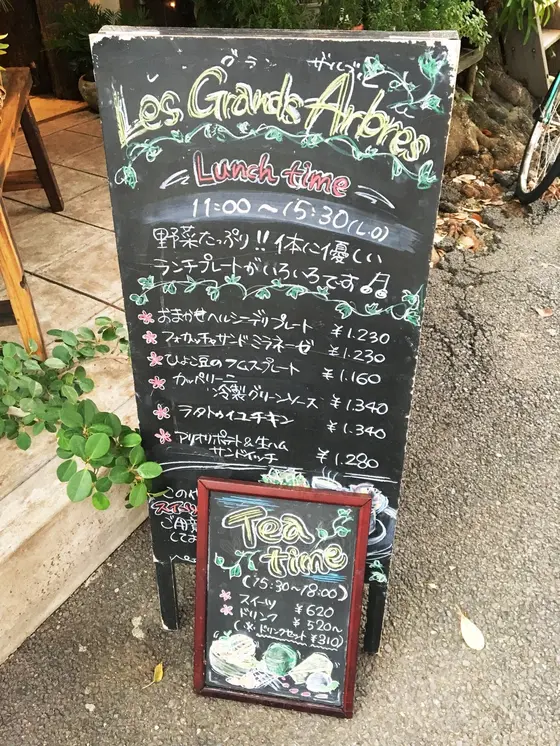 グラン ザルブル
Les Grands Arbres
Lunch time
11:00～15:30(L.O)
野菜たっぷり!!体に優しい
ランチプレートがいろいろです♫
おまかせヘルシーデリプレート ¥1.230
フォカッチャサンド ミラネーゼ ¥1.230
ひよこ豆のフムスプレート ¥1.160
カッペリーニ
冷製グリーンソース ¥1.340
ラタトゥイユチキン ¥1.340
アリオリポテト&生ハム
サンドイッチ ¥1.280
この
スイーツ
ご用意
して
Tea
time
(15:30~18:00)
スイーツ ¥620
ドリンク ¥520~
(※ドリンクセット ¥310)